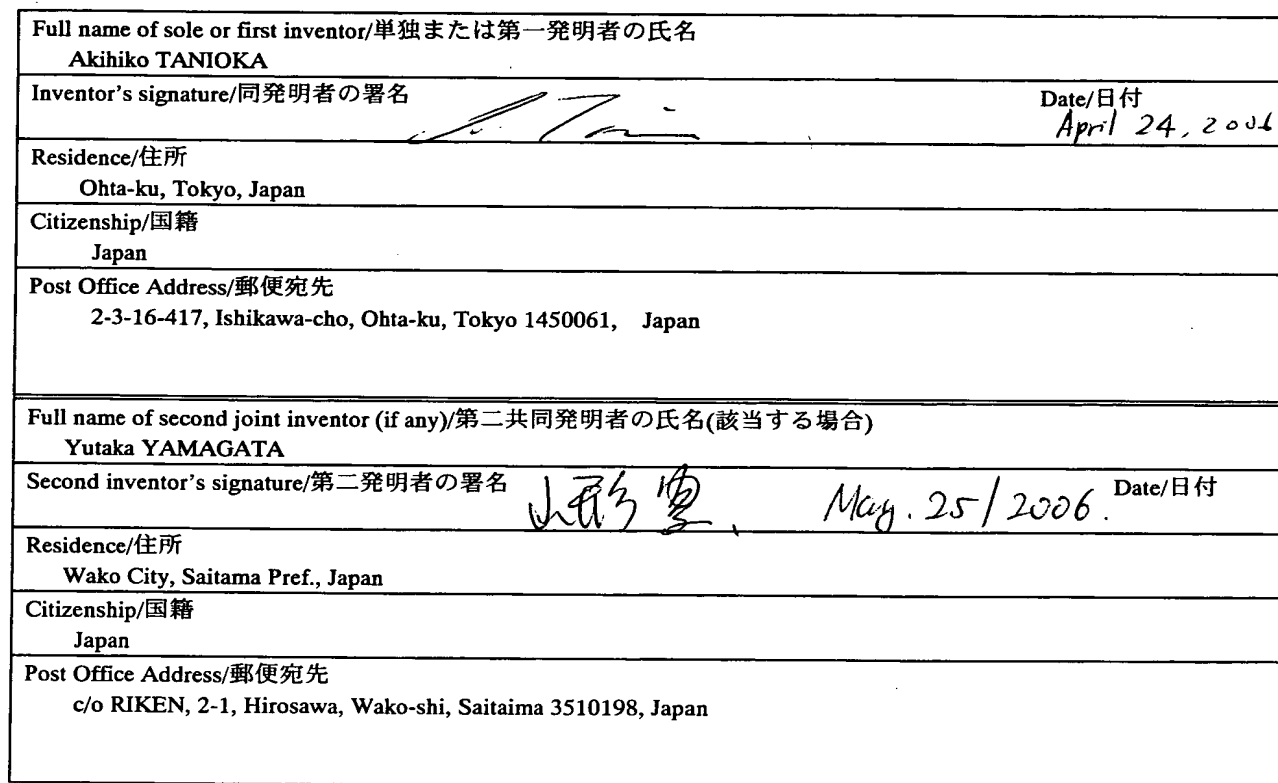 Full name of sole or first inventor/単独または第一発明者の氏名
Akihiko TANIOKA
Inventor's signature/同発明者の署名
Date/日付
April 24, 2006
Residence/住所
Ohta-ku, Tokyo, Japan
Citizenship/国籍
Japan
Post Office Address/郵便宛先
2-3-16-417, Ishikawa-cho, Ohta-ku, Tokyo 1450061, Japan
Full name of second joint inventor (if any)/第二共同発明者の氏名(該当する場合)
Yutaka YAMAGATA
Second inventor's signature/第二発明者の署名 山形 豊 May. 25/2006. Date/日付
Residence/住所
Wako City, Saitama Pref., Japan
Citizenship/国籍
Japan
Post Office Address/郵便宛先
c/o RIKEN, 2-1, Hirosawa, Wako-shi, Saitaima 3510198, Japan